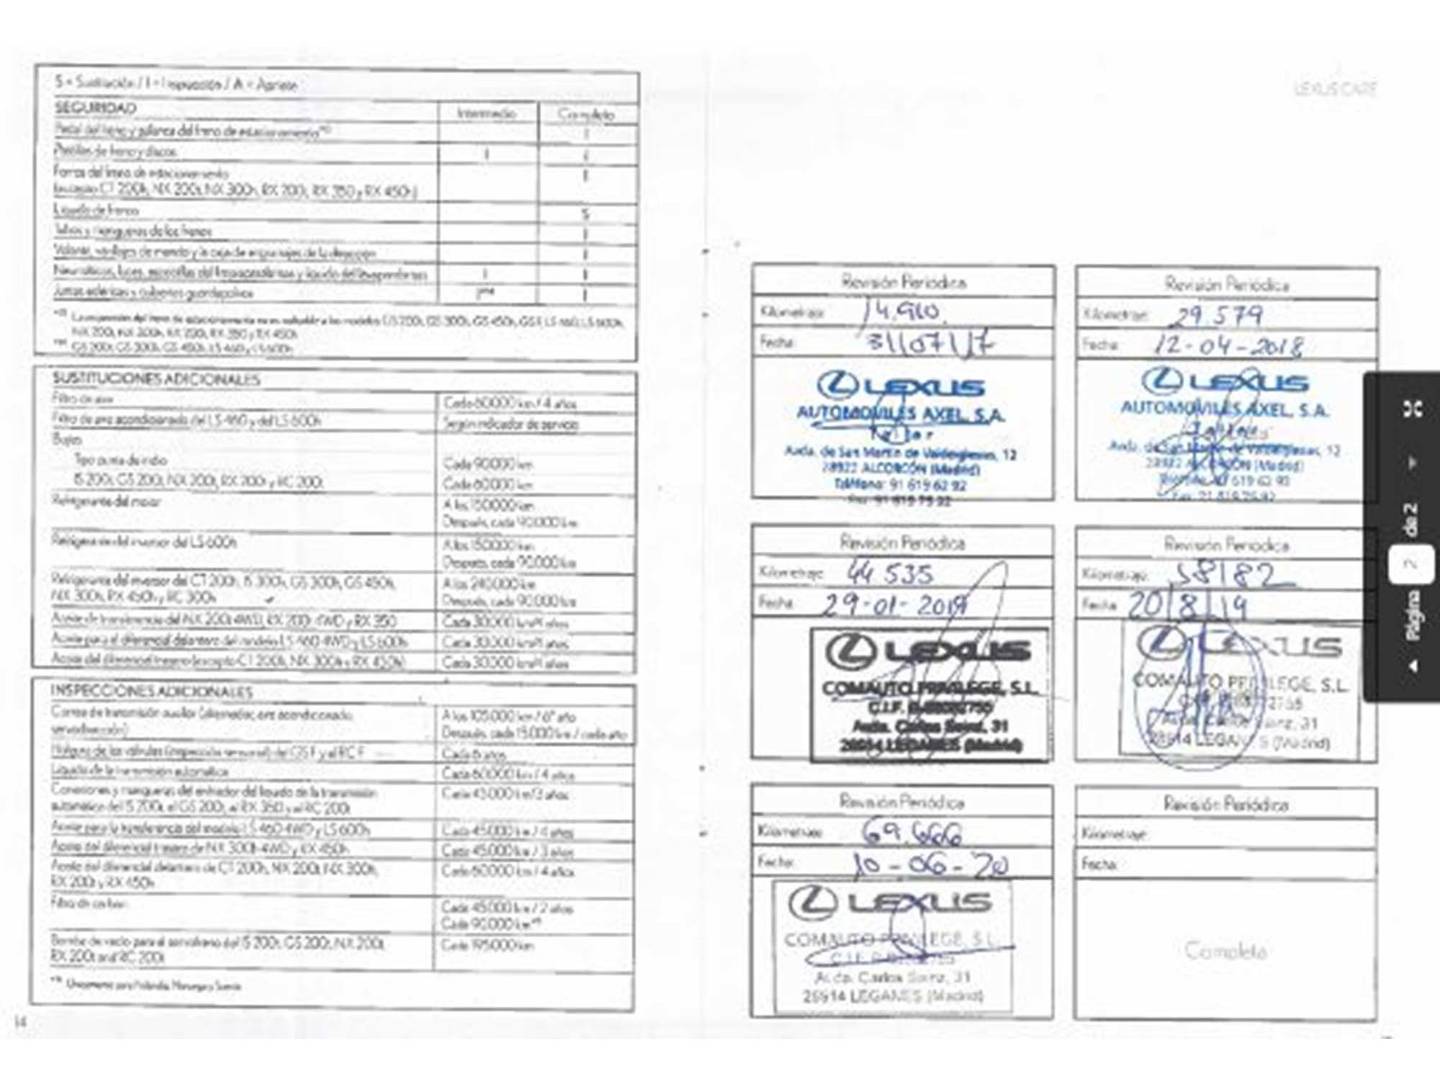 S = Sustitución / I = Inspección / A = Apriete
SEGURIDAD
Intermedio
Completo
Pedal del freno y palanca del freno de estacionamiento
I
Pastillas de freno y discos
I
I
Forros del freno de estacionamiento
I
(excepto CT 200h, NX 200t, NX 300h, RX 200t, RX 350 y RX 450h)
Líquido de frenos
S
Tubos y mangueras de los frenos
I
Volante, varillajes de mando y la caja de engranajes de la dirección
I
Neumáticos, luces, escobillas del limpiaparabrisas y líquido del lavaparabrisas
I
I
Juntas esféricas y cubiertas guardapolvos
I
NX 200t, NX 300h, RX 200t, RX 350 y RX 450h
GS 200t, GS 300h, GS 450h, LS 460 y LS 600h
SUSTITUCIONES ADICIONALES
Filtro de aire
Cada 60.000 km / 4 años
Filtro de aire acondicionado del LS 460 y del LS 600h
Según indicador de servicio
Bujías
Tipo punta de iridio
Cada 90.000 km
IS 200t, GS 200t, NX 200t, RX 200t y RC 200t
Cada 60.000 km
Refrigerante del motor
A los 150.000 km
Después, cada 90.000 km
Refrigerante del inversor del LS 600h
A los 150.000 km
Después, cada 90.000 km
Refrigerante del inversor del CT 200h, IS 300h, GS 300h, GS 450h,
NX 300h, RX 450h y RC 300h
A los 240.000 km
Después, cada 90.000 km
Aceite de transferencia del NX 200t 4WD, RX 200t 4WD y RX 350
Aceite para el diferencial delantero del modelo LS 460 4WD y LS 600h
Aceite del diferencial trasero (excepto CT 200h, NX 300h y RX 450h)
INSPECCIONES ADICIONALES
Correa de transmisión auxiliar (alternador, aire acondicionado,
servodirección)
A los 105.000 km / 6º año
Después, cada 15.000 km / cada año
Holgura de las válvulas (inspección sensorial) del GS F y el RC F
Cada 6 años
Líquido de la transmisión automática
Cada 60.000 km / 4 años
Conexiones y mangueras del enfriador del líquido de la transmisión
automática del IS 200t, el GS 200t, el RX 350 y el RC 200t
Cada 45.000 km/3 años
Aceite para la transferencia del modelo LS 460 4WD y LS 600h
Cada 45.000 km / 4 años
Aceite del diferencial trasero de NX 300h 4WD y RX 450h
Cada 45.000 km / 3 años
Aceite del diferencial delantero de CT 200h, NX 200t, NX 300h,
RX 200t y RX 450h
Cada 60.000 km / 4 años
Filtro de carbón
Cada 45.000 km / 2 años
Cada 90.000 km
Bomba de vacío para el servofreno del IS 200t, GS 200t, NX 200t,
RX 200t and RC 200t
Cada 195.000 km
Únicamente para Finlandia, Noruega y Suecia
14
LEXUS CARE
Revisión Periódica
Kilometraje: 14.910
Fecha: 31/07/17
LEXUS
AUTOMOVILES AXEL, S.A.
Taller
Avda. de San Martín de Valdeiglesias, 12
28922 ALCORCÓN (Madrid)
Teléfono: 91 619 62 92
Fax: 91 619 75 92
Revisión Periódica
Kilometraje: 29.579
Fecha: 12-04-2018
LEXUS
AUTOMOVILES AXEL, S.A.
Taller
Avda. de San Martín de Valdeiglesias, 12
28922 ALCORCÓN (Madrid)
Teléfono: 91 619 62 92
Fax: 91 619 75 92
Revisión Periódica
Kilometraje: 44 535
Fecha: 29-01-2019
LEXUS
COMAUTO PRIVILEGE, S.L.
C.I.F.
Avda. Carlos Sainz, 31
28914 LEGANES (Madrid)
Revisión Periódica
Kilometraje: 58182
Fecha: 20/8/19
LEXUS
COMAUTO PRIVILEGE, S.L.
Avda. Carlos Sainz, 31
28914 LEGANES (Madrid)
Revisión Periódica
Kilometraje: 69.666
Fecha: 10-06-20
LEXUS
COMAUTO PRIVILEGE, S.L.
C.I.F.
Avda. Carlos Sainz, 31
28914 LEGANES (Madrid)
Revisión Periódica
Kilometraje:
Fecha:
Completo
Página 2 de 2